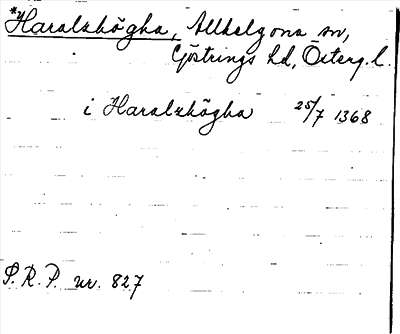 *Haralzhögha, Allhelgona sn,
Göstrings hd, Österg. l.
i Haralzhögha 25/7 1368
S. R. P. nr. 827